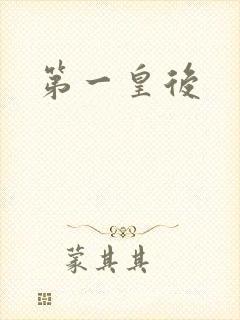 第一皇後
蒙其其